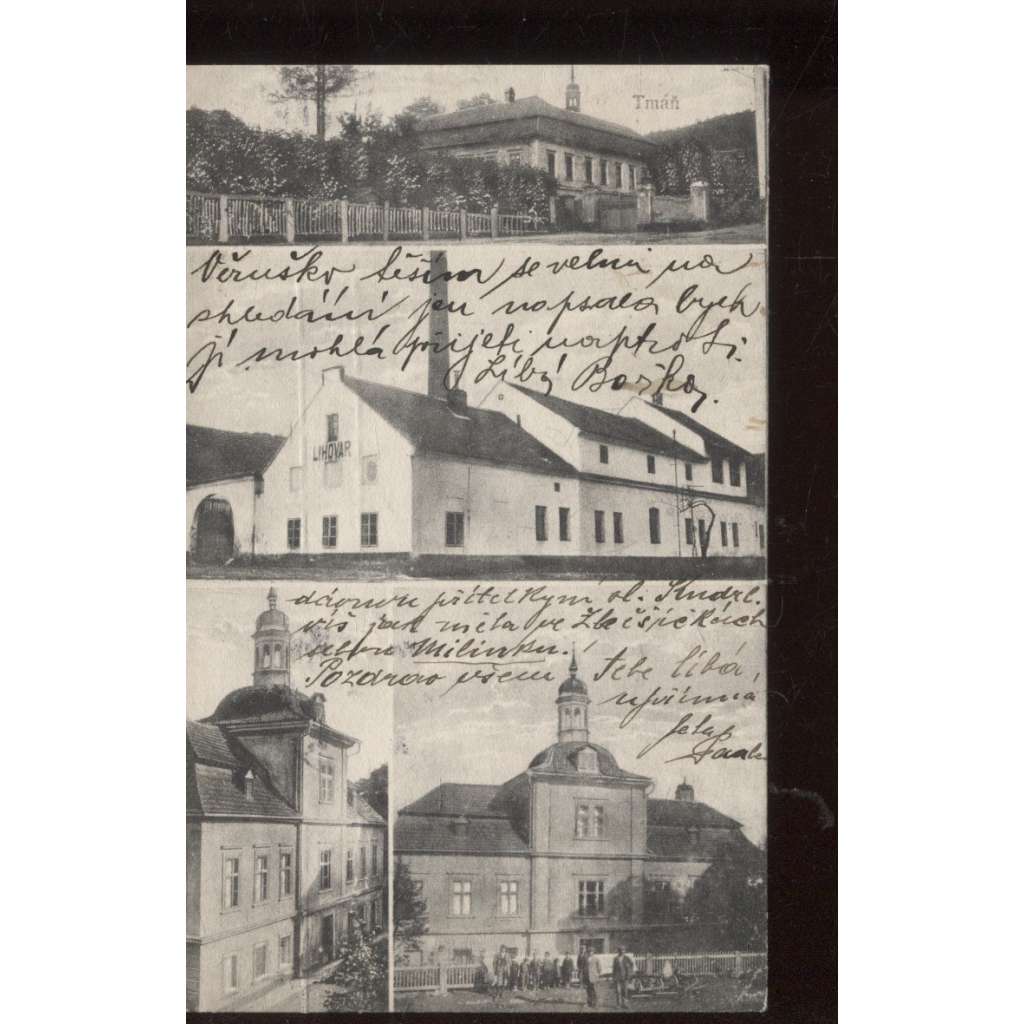 Tmáň
Věruško těším se velmi na
shledání jen napsala bych
jí mohla přijeti naproti.
Líbá Boška.
LIHOVAR
dávnou přítelkyní sl.
víš jak měla ve
sebou Milinku.!
Pozdrav všem Tebe líbá
upřímná
teta